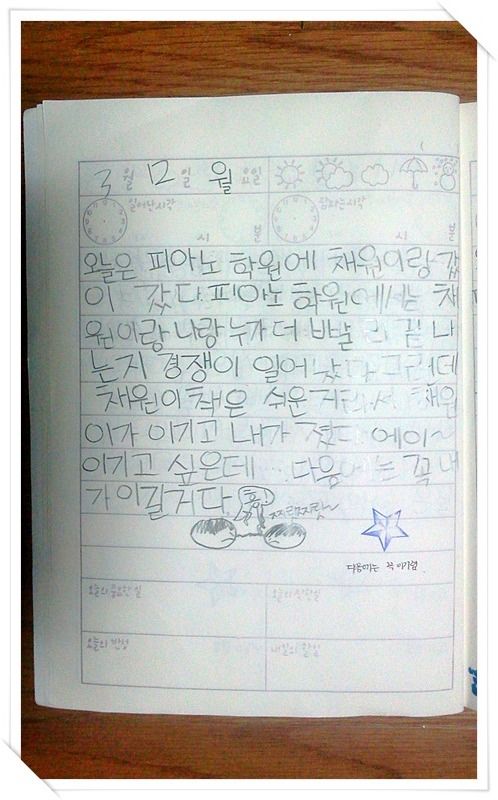 3 월 12 일 월 요일
일어난시각 잠자는시각
시 분 시 분
오늘은 피아노 학원에 채원이랑 갔
이 갔다. 피아노 학원에서는 채
원이랑 나랑 누가 더 빠빨리 끝나
는지 경쟁이 일어났다 그런데
채원이 책은 쉬운 거라서 채원
이가 이기고 내가 졌다 에이~
이기고 싶은데... 다음에는 꼭 내
가 이길거다
흥!
다음에는 꼭 이기렴.
오늘의 중요한 일 오늘의 착한일
오늘의 반성 내일의 할일